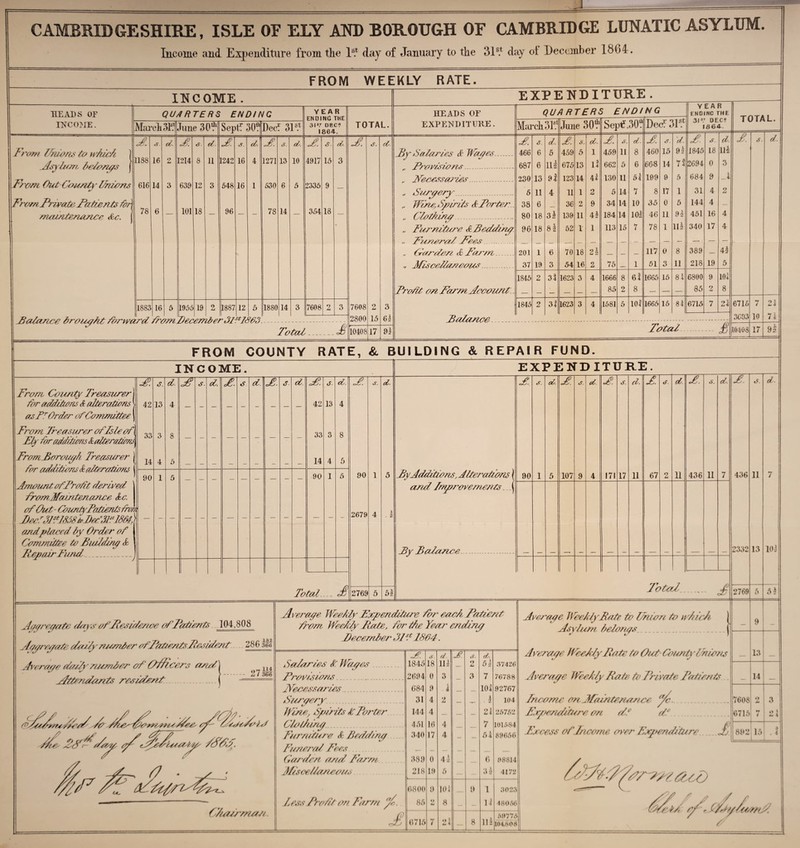 CAMBRIDGESHIRE, ISLE OF ELY AND BOROUGH OF CAMBRIDGE LUNATIC ASYLUM.
Income and Expenditure from the 1st day of January to the 31st day of December 1864.
FROM WEEKLY RATE.
INCOME.
HEADS OF INCOME. QUARTERS ENDING YEAR ENDING THE 31ST DECR 1864. TOTAL.
March 31st June 30th Septr 30th Decr 31st
£. s. d. £. s. d. £. s. d. £. s. d. £. s. d. £. s. d.
From Unions to which Asylum belongs 1188 16 2 1214 8 11 1242 16 4 1271 13 10 4917 15 3
From Out County Unions 616 14 3 639 12 3 548 16 1 530 6 5 2335 9 _
From Private Patients for maintenance &c. 78 6 _ 101 18 _ 96 _ _ 78 14 _ 354 18 _
1883 16 5 1955 19 2 1887 12 5 1880 14 3 7608 2 3 7608 2 3
Balance brought forward from December 31st 1863 2800 15 6½
Total £ 10408 17 9½
EXPENDITURE.
HEADS OF EXPENDITURE. QUARTERS ENDING YEAR ENDING THE 31ST DECR 1864. TOTAL.
March 31st June 30th Septr 30th Decr 31st
£. s. d. £. s. d. £. s. d. £. s. d. £. s. d. £. s. d.
By Salaries & Wages 466 6 5 459 5 1 459 11 8 460 15 9½ 1845 18 11½
" Provisions 687 6 11½ 675 13 1½ 662 5 6 668 14 7½ 2694 0 3
" Necessaries 230 13 9½ 123 14 4½ 130 11 5½ 199 9 5 684 9 _½
" Surgery 5 11 4 11 1 2 5 14 7 8 17 1 31 4 2
" Wine, Spirits & Porter 38 6 _ 36 2 9 34 14 10 35 0 5 144 4 _
" Clothing 80 18 3½ 139 11 4½ 184 14 10½ 46 11 9½ 451 16 4
" Furniture & Bedding 96 18 8½ 52 1 1 113 15 7 78 1 11½ 340 17 4
" Funeral Fees
" Garden & Farm 201 1 6 70 18 2½ _ _ _ 117 0 8 389 _ 4½
" Miscellaneous 37 19 3 54 16 2 75 _ 1 51 3 11 218 19 5
1845 2 3½ 1623 3 4 1666 8 6½ 1665 15 8½ 6800 9 10½
Profit on Farm Account 85 2 8 85 2 8
1845 2 3½ 1623 3 4 1581 5 10½ 1665 15 8½ 6715 7 2½ 6715 7 2½
Balance 3693 10 7½
Total £ 10408 17 9½
FROM COUNTY RATE, & BUILDING & REPAIR FUND.
INCOME.
£. s. d. £. s. d. £. s. d. £. s. d. £. s. d. £. s. d.
From County Treasurer for additions & alterations as Pr Order of Committee 42 13 4 42 13 4
From Treasurer of Isle of Ely for additions & alterations 33 3 8 33 3 8
From Borough Treasurer for additions & alterations 14 4 5 14 4 5
90 1 5 90 1 5 90 1 5
Amount of Profit derived from Maintenance &c. of Out-County Patients from Decr 31st 1858 to Decr 31st 1864, and placed by Order of Committee to Building & Repair Fund 2679 4 _½
Total £ 2769 5 5½
EXPENDITURE.
£. s. d. £. s. d. £. s. d. £. s. d. £. s. d. £. s. d.
By Additions, Alterations and Improvements 90 1 5 107 9 4 171 17 11 67 2 11 436 11 7 436 11 7
By Balance 2332 13 10½
Total £ 2769 5 5½
Aggregate days of Residence of Patients 104,808
Aggregate daily number of Patients Resident 286
Average daily number of Officers and Attendants resident 27
Submitted to the Committee of Visitors
the 28th day of February 1865.
Chairman.
Average Weekly Expenditure for each Patient from Weekly Rate, for the Year ending December 31st 1864.
£. s. d. £. s. d.
Salaries & Wages 1845 18 11½ _ 2 5½ 37426
Provisions 2694 0 3 _ 3 7 76788
Necessaries 684 9 _½ _ _ 10½ 92767
Surgery 31 4 2 _ _ ½ 104
Wine, Spirits & Porter 144 4 _ _ _ 2½ 25752
Clothing 451 16 4 _ _ 7 101584
Furniture & Bedding 340 17 4 _ _ 5½ 89656
Funeral Fees
Garden and Farm 389 0 4½ _ _ 6 98814
Miscellaneous 218 19 5 _ _ 3½ 4172
6800 9 10½ _ 9 1 3023
Less Profit on Farm 85 2 8 _ _ 1½ 48056
£ 6715 7 2½ _ 8 11½ 59775 104808
Average Weekly Rate to Union to which Asylum belongs _ 9 _
Average Weekly Rate to Out-County Unions _ 13 _
Average Weekly Rate to Private Patients _ 14 _
Income on Maintenance 7608 2 3
Expenditure on do do 6715 7 2½
Excess of Income over Expenditure £ 892 15 _½
Clerk of Asylum.